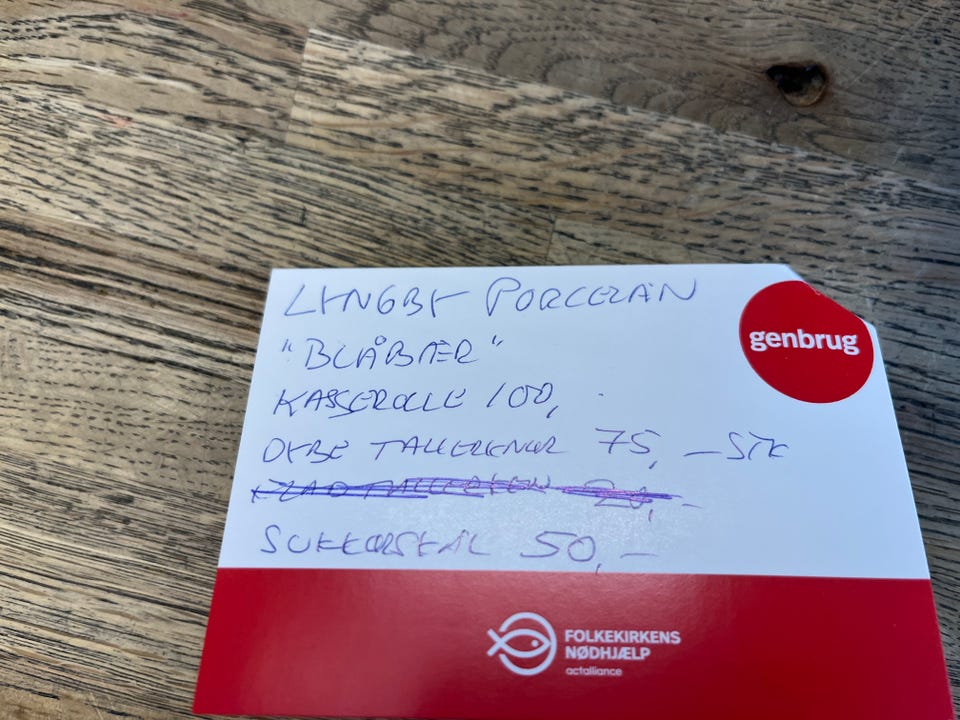 LYNGBY PORCELÆN
"BLÅBÆR"
KASSEROLLE 100,
DYBE TALLERKNER 75,- STK
FLAD TALLERKEN 20,-
SUKKERSKÅL 50,-
genbrug
FOLKEKIRKENS
NØDHJÆLP
actalliance